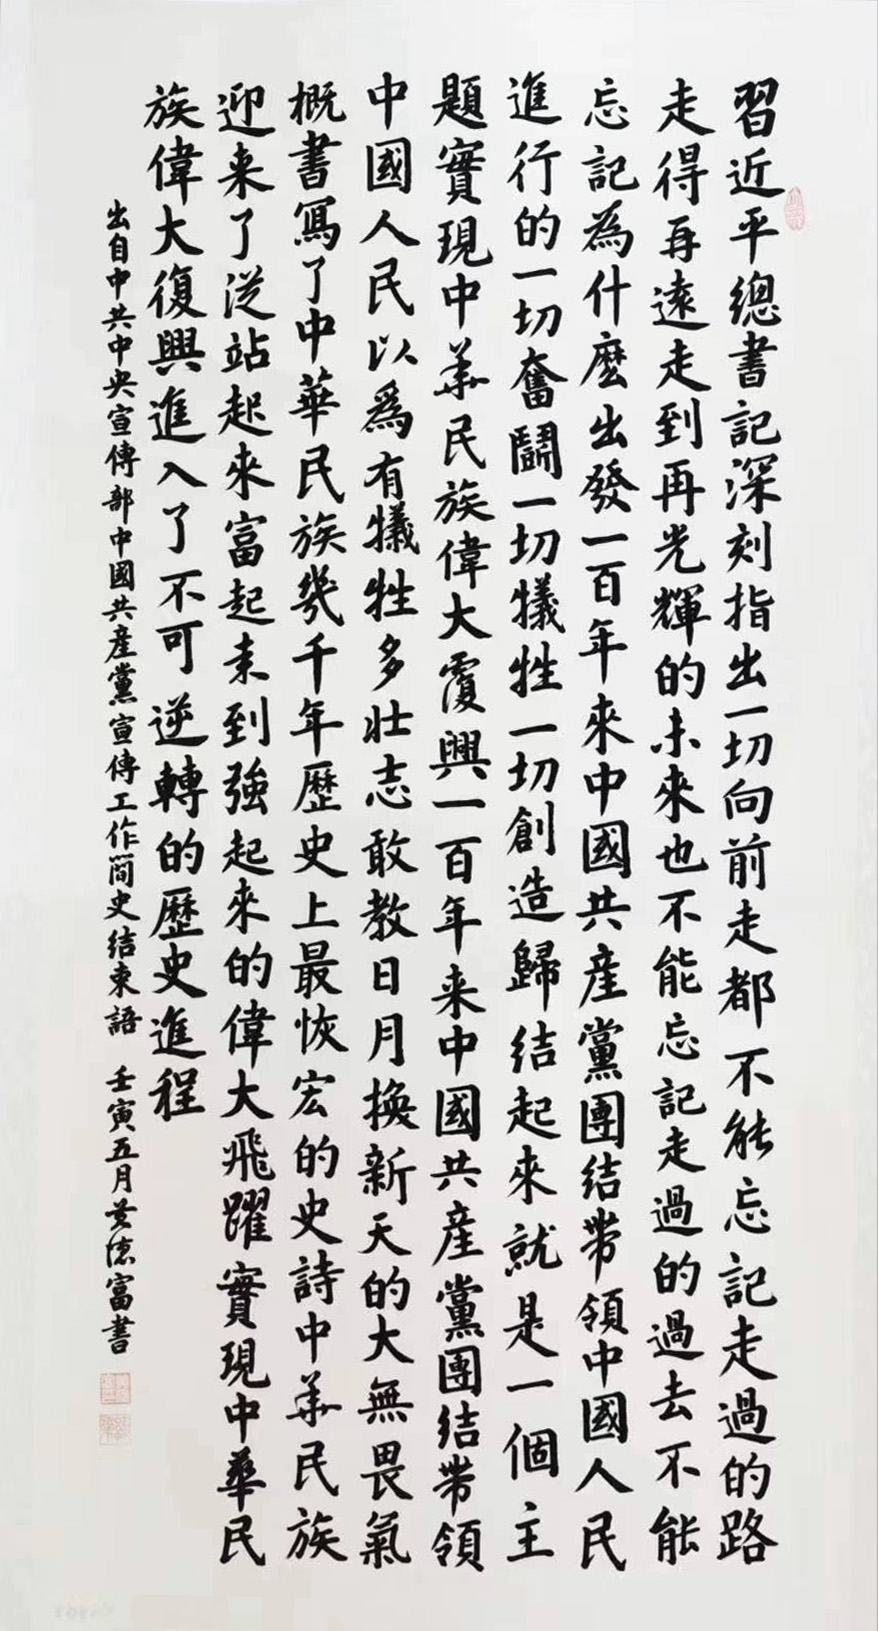 習近平總書記深刻指出一切向前走都不能忘記走過的路
走得再遠走到再光輝的未來也不能忘記走過的過去不能
忘記為什麼出發一百年來中國共產黨團结帶領中國人民
進行的一切奮鬭一切犠牲一切創造歸结起來就是一個主
題實現中華民族偉大復興一百年来中國共產黨團结帶領
中國人民以爲有犠牲多壯志敢教日月換新天的大無畏氣
概書寫了中華民族幾千年歷史上最恢宏的史詩中華民族
迎来了從站起來富起来到強起來的偉大飛躍實現中華民
族偉大復興進入了不可逆轉的歷史進程
出自中共中央宣傳部中國共產黨宣傳工作簡史结束語 壬寅五月黄德富書